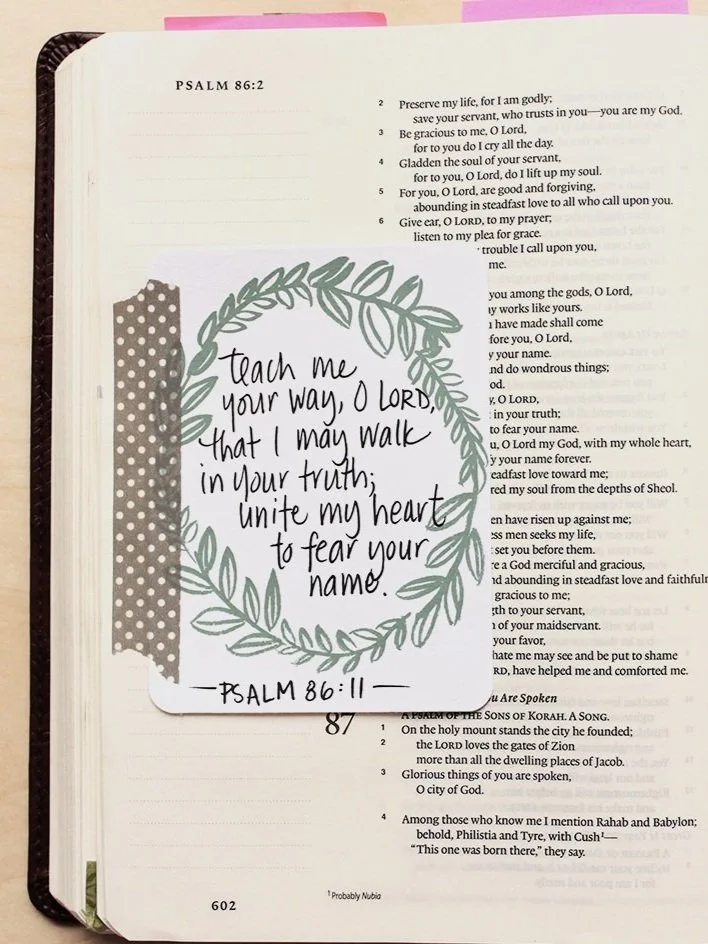 PSALM 86:2
2 Preserve my life, for I am godly;
save your servant, who trusts in you—you are my God.
3 Be gracious to me, O Lord,
for to you do I cry all the day.
4 Gladden the soul of your servant,
for to you, O Lord, do I lift up my soul.
5 For you, O Lord, are good and forgiving,
abounding in steadfast love to all who call upon you.
6 Give ear, O LORD, to my prayer;
listen to my plea for grace.
trouble I call upon you,
me.
you among the gods, O Lord,
works like yours.
have made shall come
you, O Lord,
your name.
and do wondrous things;
O LORD,
in your truth;
to fear your name.
O Lord my God, with my whole heart,
your name forever.
steadfast love toward me;
my soul from the depths of Sheol.
have risen up against me;
men seeks my life,
set you before them.
a God merciful and gracious,
and abounding in steadfast love and
gracious to me;
to your servant,
of your maidservant.
your favor,
hate me may see and be put to shame
have helped me and comforted me.
teach me
your way, O LORD,
that I may walk
in your truth;
unite my heart
to fear your
name.
—PSALM 86:11—
Are Spoken
87
A PSALM OF THE SONS OF KORAH. A SONG.
1 On the holy mount stands the city he founded;
2 the LORD loves the gates of Zion
more than all the dwelling places of Jacob.
3 Glorious things of you are spoken,
O city of God.
4 Among those who know me I mention Rahab and Babylon;
behold, Philistia and Tyre, with Cush1—
“This one was born there,” they say.
1 Probably Nubia
602